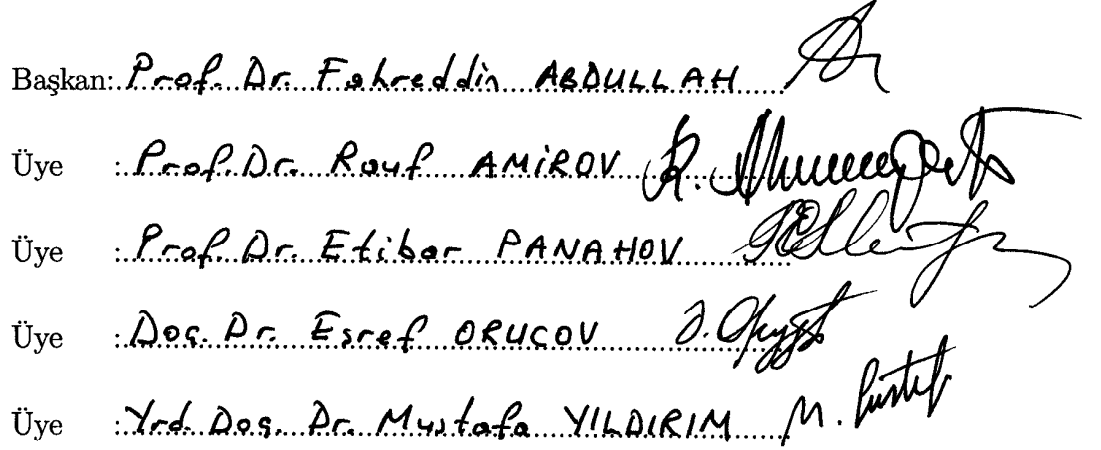 Başkan: Prof. Dr. Fahreddin ABDULLAH
Üye : Prof. Dr. Rauf AMİROV
Üye : Prof. Dr. Etibar PANAHOV
Üye : Doç. Dr. Eşref ORUCOV
Üye : Yrd. Doç. Dr. Mustafa YILDIRIM